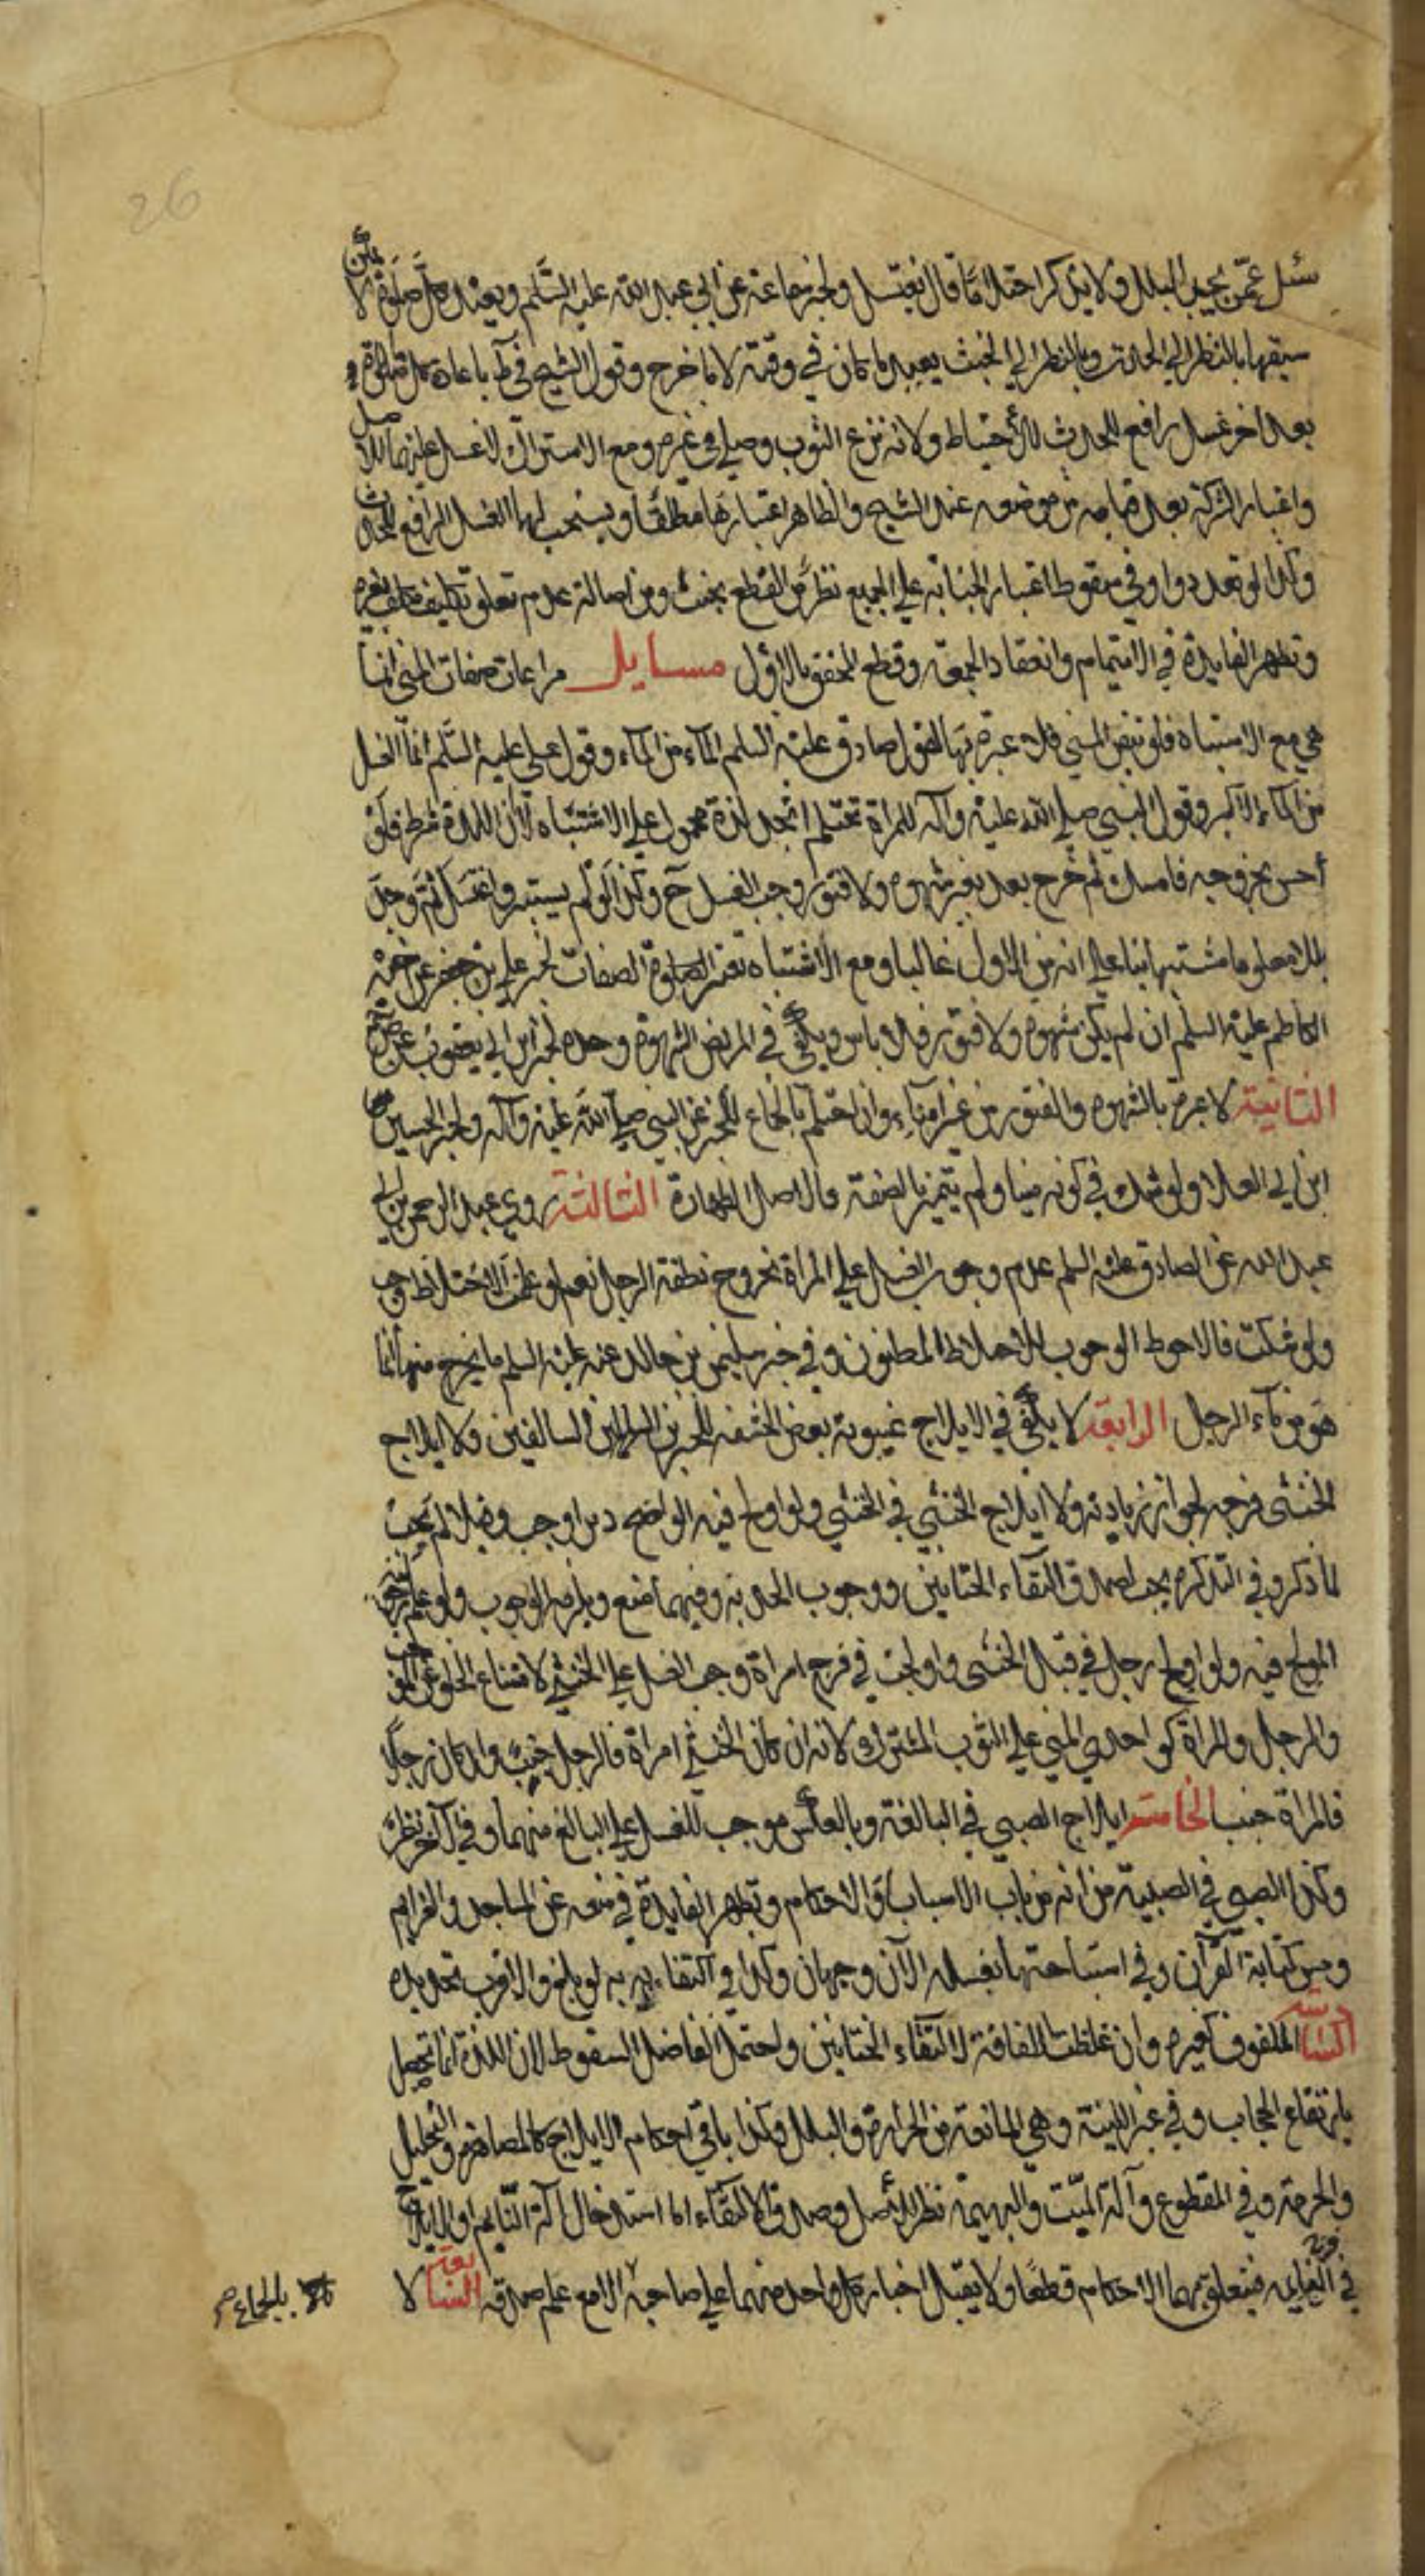 26
سئل عمن يجد البلل ولا يذكر احتلاما قال يغتسل ولخبر سماعة عن ابي عبد الله عليه السلم ويعيد كل صلوة لا يمكن
سبقها بالنظر الي الحدث وبالنظر الي الخبث يعيد ما كان في وقته لا ما خرج وقول الشيخ في ط باعادة كل صلوة
بعد اخر غسل رافع للحدث للاحتياط ولانه نزع الثوب وصلي في غيره ومع الاشتراك لا غسل عليهما للاصل
واعتبار الشركة بعد قيامه من موضعه عند الشيخ والظاهر اعتبارها مطلقا ويستحب لهما الغسل الرافع للحدث
وكذا لو تعددوا وفي سقوط اعتبار الجنابة علي الجميع نظر من القطع بجنب ومن اصالة عدم تعلق تكليف مكلف بغيره
وتظهر الفايدة في الايتمام وانعقاد الجمعة وقطع المحقق بالاول مسايل مراعات صفات المني انما
هي مع الاشتباه فلو تيقن المني فلا عبرة بها لقول صادق عليه السلم الماء من الماء وقول علي عليه السلم انما الغسل
من الماء الاكبر وقول النبي صلي الله عليه وآله للمراة تحتلم اتجد لذة محمول علي الاشتباه لا ان اللذة شرط فلو
احس بخروجه فامسك ثم خرج بعد بغير شهوة ولا فتور وجب الغسل ح وكذا لو لم يستبر واغتسل ثم وجد
بللا معلوما مشتبها بناء علي انه من الاول غالبا ومع الاشتباه تعتبر الصفات لخبر علي بن جعفر عن اخيه
الكاظم عليه السلم ان لم يكن شهوة ولا فتور فلا باس ويكفي في المريض الشهوة وحده لخبر ابن ابي يعفور عن
الثانية لا عبرة بالشهوة والفتور من غير امناء وان احتلم بالجماع للخبر عن النبي صلي الله عليه وآله ولخبر الحسين
ابن ابي العلا ولو شك في كونه منيا ولم يتميز بالصفة فالاصل الطهارة الثالثة روي عبد الرحمن بن ابي
عبد الله عن الصادق عليه السلم عدم وجوب الغسل علي المراة بخروج نطفة الرجل نعم لو علمت الاختلاط وجب
ولو شكت فالاحوط الوجوب للاختلاط المظنون وفي خبر سليمن بن خالد عنه عليه السلم ما يخرج منها انما
هو من ماء الرجل الرابعة لا يكفي في الايلاج غيبوبة بعض الحشفة للخبرين السالفين ولا ايلاج
الخنثى فرجه لجواز زيادته ولا ايلاج الخنثي في الخنثي ولو اولج فيه الواضح دبرا وجب وقبلا لم يجب
لما ذكر وفي التذكرة يجب لصدق التقاء الختانين ووجوب الحد به وفيهما منع ويلزمه الوجوب ولو علم
المولج فيه ولو اولج رجل في قبل الخنثى واولجت في فرج امراة وجب الغسل علي الخنثي لامتناع الخلو عن الموجب
والرجل والمراة كواجدي المني علي الثوب المشترك لانه ان كان الخنثي امراة فالرجل جنب وان كان رجلا
فالمراة جنب الخامسة ايلاج الصبي في البالغة وبالعكس موجب للغسل علي البالغ منهما وفي الآخر نظر
وكذا الصبي في الصبية من انه من باب الاسباب او الاحكام وتظهر الفايدة في منعه عن المساجد والعزايم
ومس كتابة القرآن وفي استباحتها بغسله الآن وجهان وكذا في اكتفاءيه به لو بلغ والاقرب تجديده
السادسة الملفوف كغيره وان غلظت اللفافة لالتقاء الختانين واحتمل الفاضل السقوط لان اللذة انما تحصل
بارتفاع الحجاب وفي غير اللينة وهي المانعة من الحرارة والبلل وكذا باقي احكام الايلاج كالمصاهرة والتحليل
والحرمة وفي المقطوع وآلة الميت والبهيمة نظر للاصل وصدق الالتقاء اما استدخال آلة النايم او الايلاج
في النايمة فيتعلق بهما الاحكام قطعا ولا يقبل اخبار كل واحد منهما علي صاحبه الا مع علم صدقه السابعة لا
بالجماع